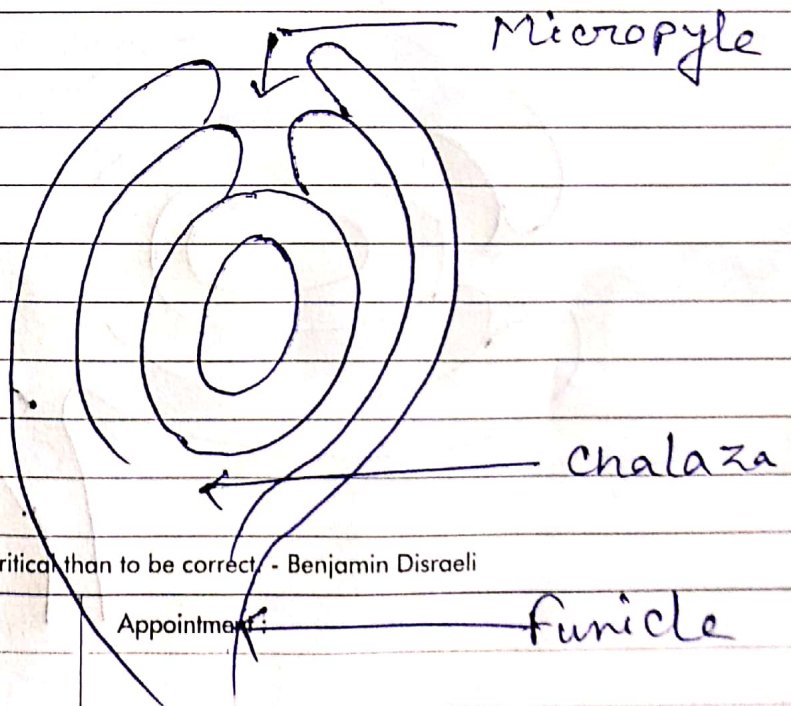 Micropyle
Chalaza
ritical than to be correct. - Benjamin Disraeli
Appointment :
Funicle